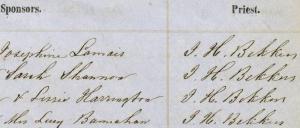 Sponsors. Priest.
Josephine Lamais J. H. Bekkers
Sarah Shannon J. H. Bekkers
& Lizzie Harrington J. H. Bekkers
Mrs Lucy Bamahan J. H. Bekkers